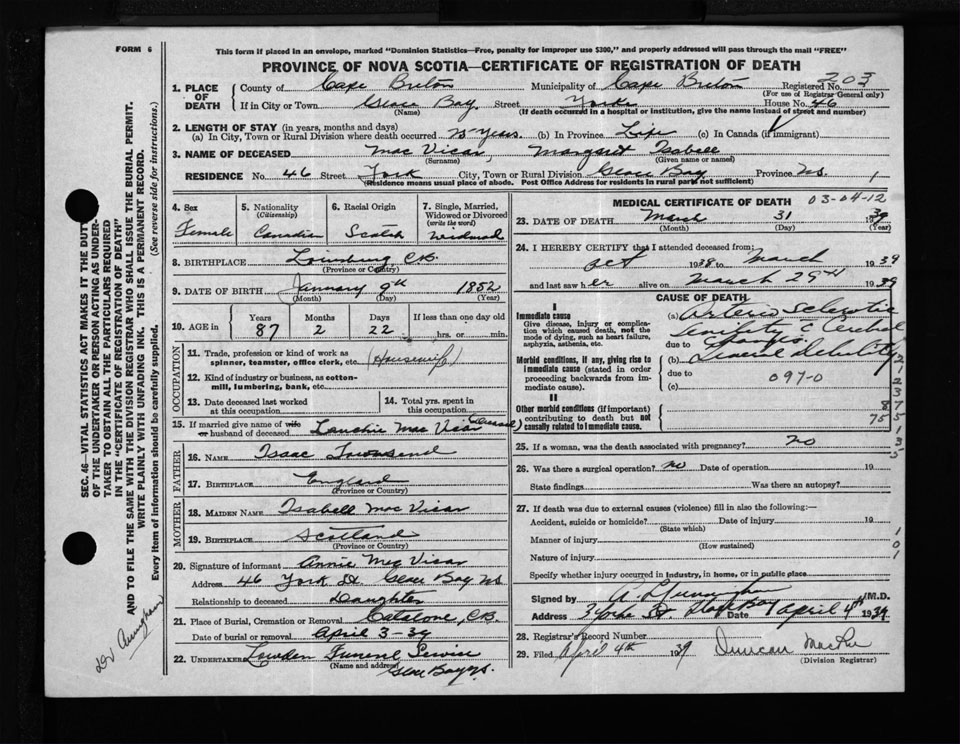 FORM 6
This form if placed in an envelope, marked "Dominion Statistics—Free, penalty for improper use $300," and properly addressed will pass through the mail "FREE"
PROVINCE OF NOVA SCOTIA—CERTIFICATE OF REGISTRATION OF DEATH
1. PLACE OF DEATH County of Cape Breton Municipality of Cape Breton Registered No. 203
(For use of Registrar General only)
If in City or Town Glace Bay Street Yorke House No. 46
(Name) (If death occurred in a hospital or institution, give the name instead of street and number)
2. LENGTH OF STAY (in years, months and days)
(a) In City, Town or Rural Division where death occurred Years. (b) In Province Life (c) In Canada (if immigrant)
3. NAME OF DECEASED Mac Vicar, Margaret Isabell
(Surname) (Given name or names)
RESIDENCE No. 46 Street York City, Town or Rural Division Glace Bay Province NS. 1
(Residence means usual place of abode. Post Office Address for residents in rural parts not sufficient)
4. Sex Female
5. Nationality (Citizenship) Canadian
6. Racial Origin Scotch
7. Single, Married, Widowed or Divorced (write the word) Widowed
8. BIRTHPLACE Louisburg C.B.
(Province or Country)
9. DATE OF BIRTH January 9th 1852
(Month) (Day) (Year)
10. AGE in Years 87 Months 2 Days 22 If less than one day old
hrs. or min.
OCCUPATION
11. Trade, profession or kind of work as spinner, teamster, office clerk, etc. (Housewife)
12. Kind of industry or business, as cotton-mill, lumbering, bank, etc.
13. Date deceased last worked at this occupation
14. Total yrs. spent in this occupation
15. If married give name of wife or husband of deceased Lauchie Mac Vicar (Deceased)
FATHER
16. NAME Isaac Townsend
17. BIRTHPLACE England
(Province or Country)
MOTHER
18. MAIDEN NAME Isabell Mac Vicar
19. BIRTHPLACE Scotland
(Province or Country)
20. Signature of informant Annie Mac Vicar
Address 46 York St Glace Bay NS
Relationship to deceased Daughter
21. Place of Burial, Cremation or Removal Catalone, C.B.
Date of burial or removal April 3-39
22. UNDERTAKER Funeral Service
(Name and address) Glace Bay NS.
MEDICAL CERTIFICATE OF DEATH 03-04-12
23. DATE OF DEATH March 31 1939
(Month) (Day) (Year)
24. I HEREBY CERTIFY that I attended deceased from:
Oct 1938 to March 1939
and last saw her alive on March 29th 1939
CAUSE OF DEATH
I
Immediate cause
Give disease, injury or complication which caused death, not the mode of dying, such as heart failure, asphyxia, asthenia, etc.
(a) Arterio Sclerotic
Senility c Cerebral
due to Changes.
Morbid conditions, if any, giving rise to immediate cause (stated in order proceeding backwards from immediate cause).
(b) General Debility
due to
(c) 097-0
II
Other morbid conditions (if important) contributing to death but not causally related to immediate cause.
25. If a woman, was the death associated with pregnancy? no
26. Was there a surgical operation? no Date of operation 19
State findings Was there an autopsy?
27. If death was due to external causes (violence) fill in also the following:—
Accident, suicide or homicide? Date of injury 19
(State which)
Manner of injury
(How sustained)
Nature of injury
Specify whether injury occurred in industry, in home, or in public place
Signed by M.D.
Address Yorke St. Glace Bay Date April 4th 1939
28. Registrar's Record Number
29. Filed April 4th 1939 Duncan
(Division Registrar)
SEC. 46—VITAL STATISTICS ACT MAKES IT THE DUTY
OF THE UNDERTAKER OR PERSON ACTING AS UNDER-
TAKER TO OBTAIN ALL THE PARTICULARS REQUIRED
IN THE "CERTIFICATE OF REGISTRATION OF DEATH"
AND TO FILE THE SAME WITH THE DIVISION REGISTRAR WHO SHALL ISSUE THE BURIAL PERMIT.
WRITE PLAINLY WITH UNFADING INK. THIS IS A PERMANENT RECORD.
Every item of information should be carefully supplied. (See reverse side for instructions.)